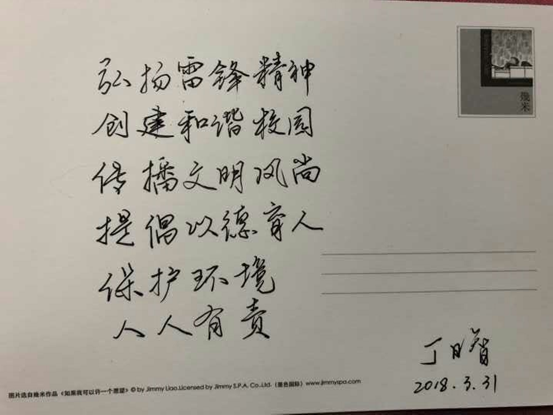 弘扬雷锋精神
创建和谐校园
传播文明风尚
提倡以德育人
保护环境
人人有责
幾米
2018.3.31
图片选自幾米作品《如果我可以许一个愿望》 © by Jimmy Liao.Licensed by Jimmy S.P.A. Co.,Ltd.(墨色国际) www.jimmyspa.com